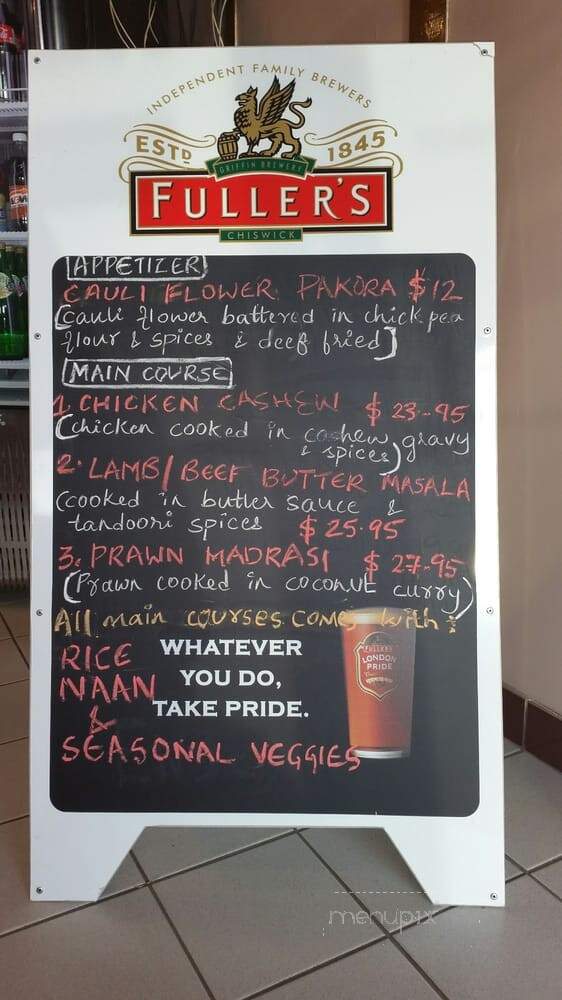 INDEPENDENT FAMILY BREWERS
ESTD 1845
GRIFFIN BREWERY
FULLER'S
CHISWICK
[APPETIZER]
CAULI FLOWER PAKORA $12
[cauli flower battered in chick pea
flour & spices & deep fried]
[MAIN COURSE]
1. CHICKEN CASHEW $23-95
(chicken cooked in cashew gravy
& spices)
2. LAMB/BEEF BUTTER MASALA
(cooked in butter sauce &
tandoori spices $25.95
3. PRAWN MADRASI $27.95
(Prawn cooked in coconut curry)
All main courses comes with:
RICE
NAAN
&
SEASONAL VEGGIES
WHATEVER
YOU DO,
TAKE PRIDE.
FULLER'S
LONDON
PRIDE
menupix